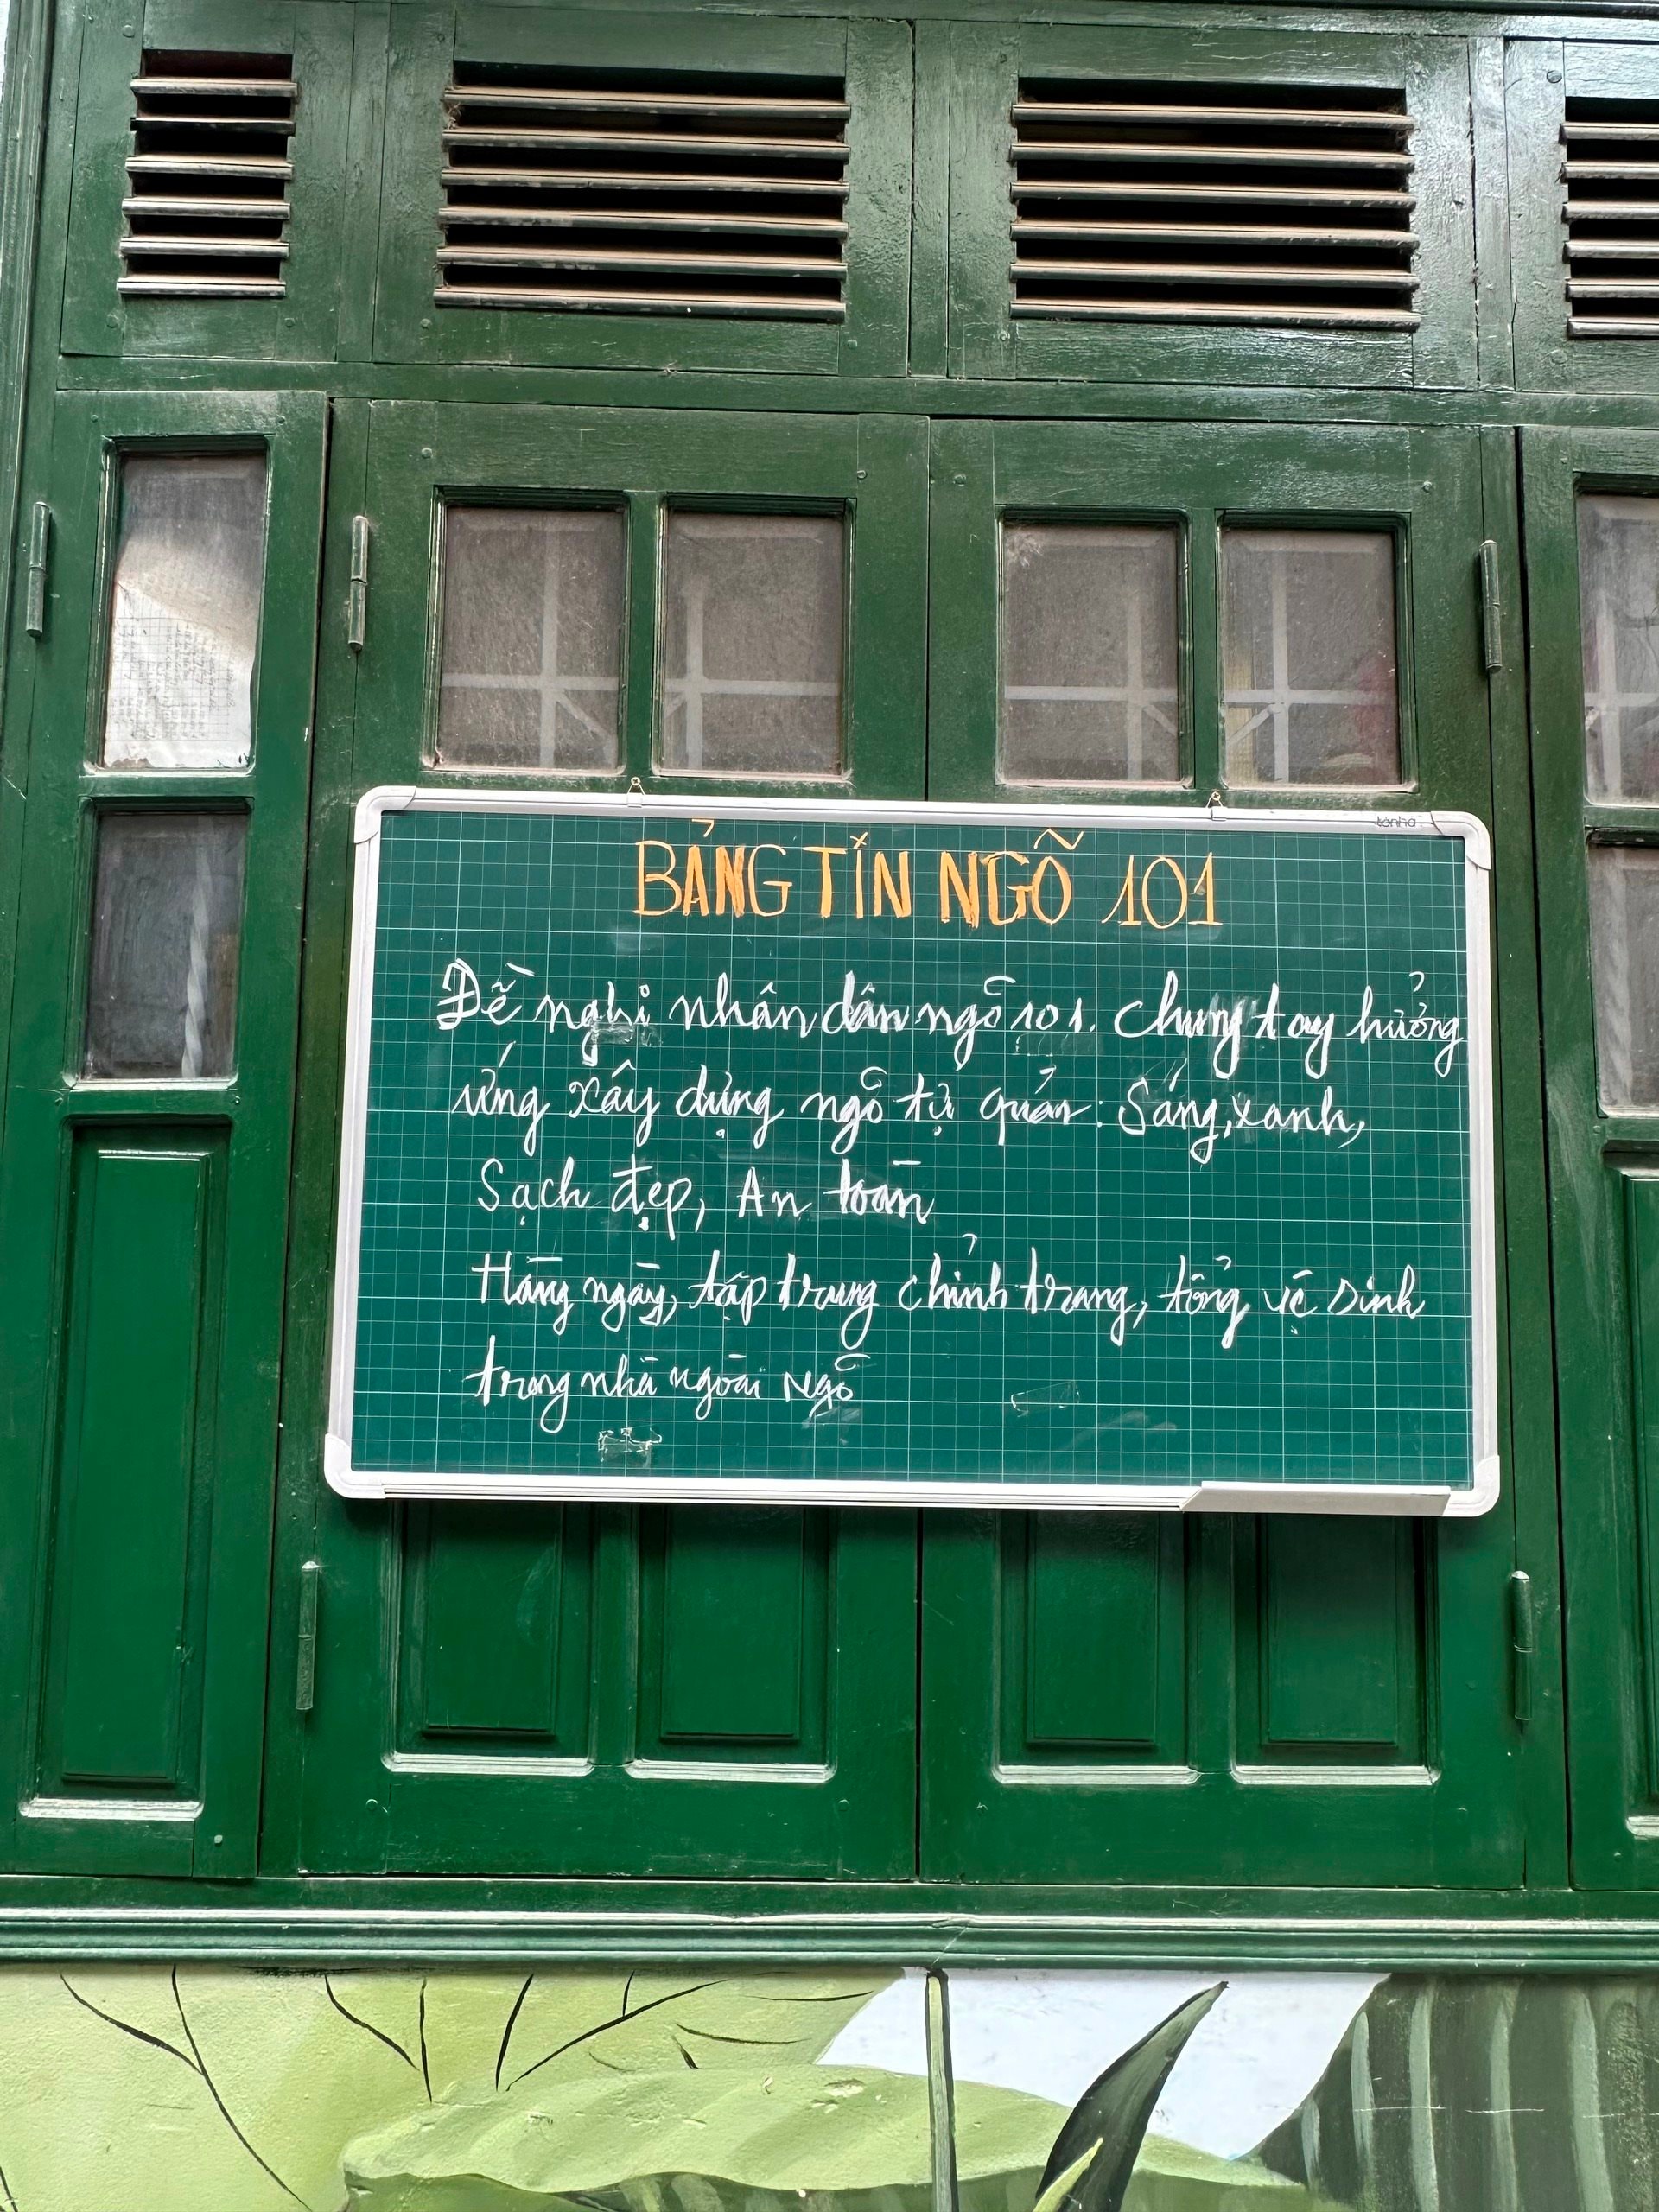 BẢNG TIN NGÕ 101
Đề nghị nhân dân ngõ 101. Chung tay hưởng
ứng xây dựng ngõ tự quản: Sáng, xanh,
Sạch đẹp, An toàn
Hàng ngày, tập trung chỉnh trang, tổng vệ sinh
trong nhà ngoài Ngõ